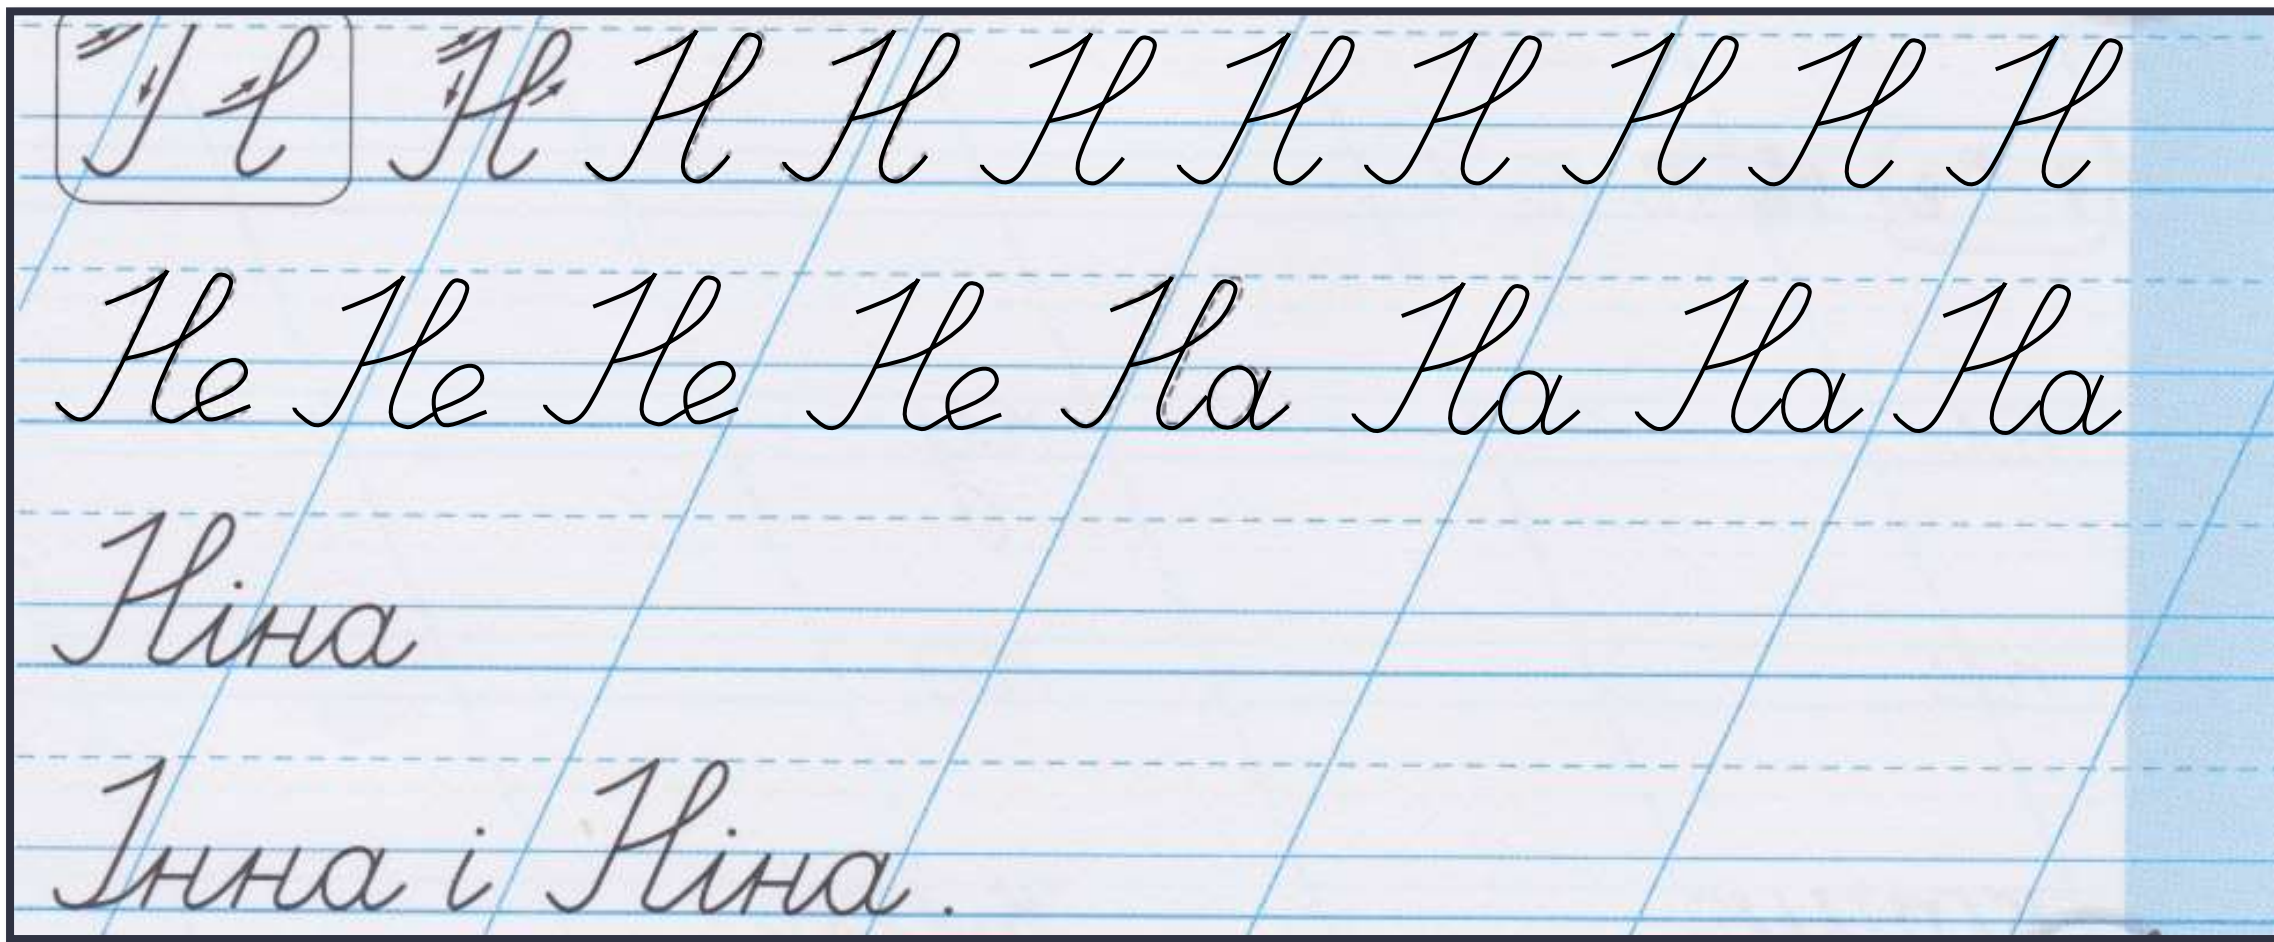 Н Н Н Н Н Н Н Н Н
Не Не Не Не На На На На
Ніна
Інна і Ніна.